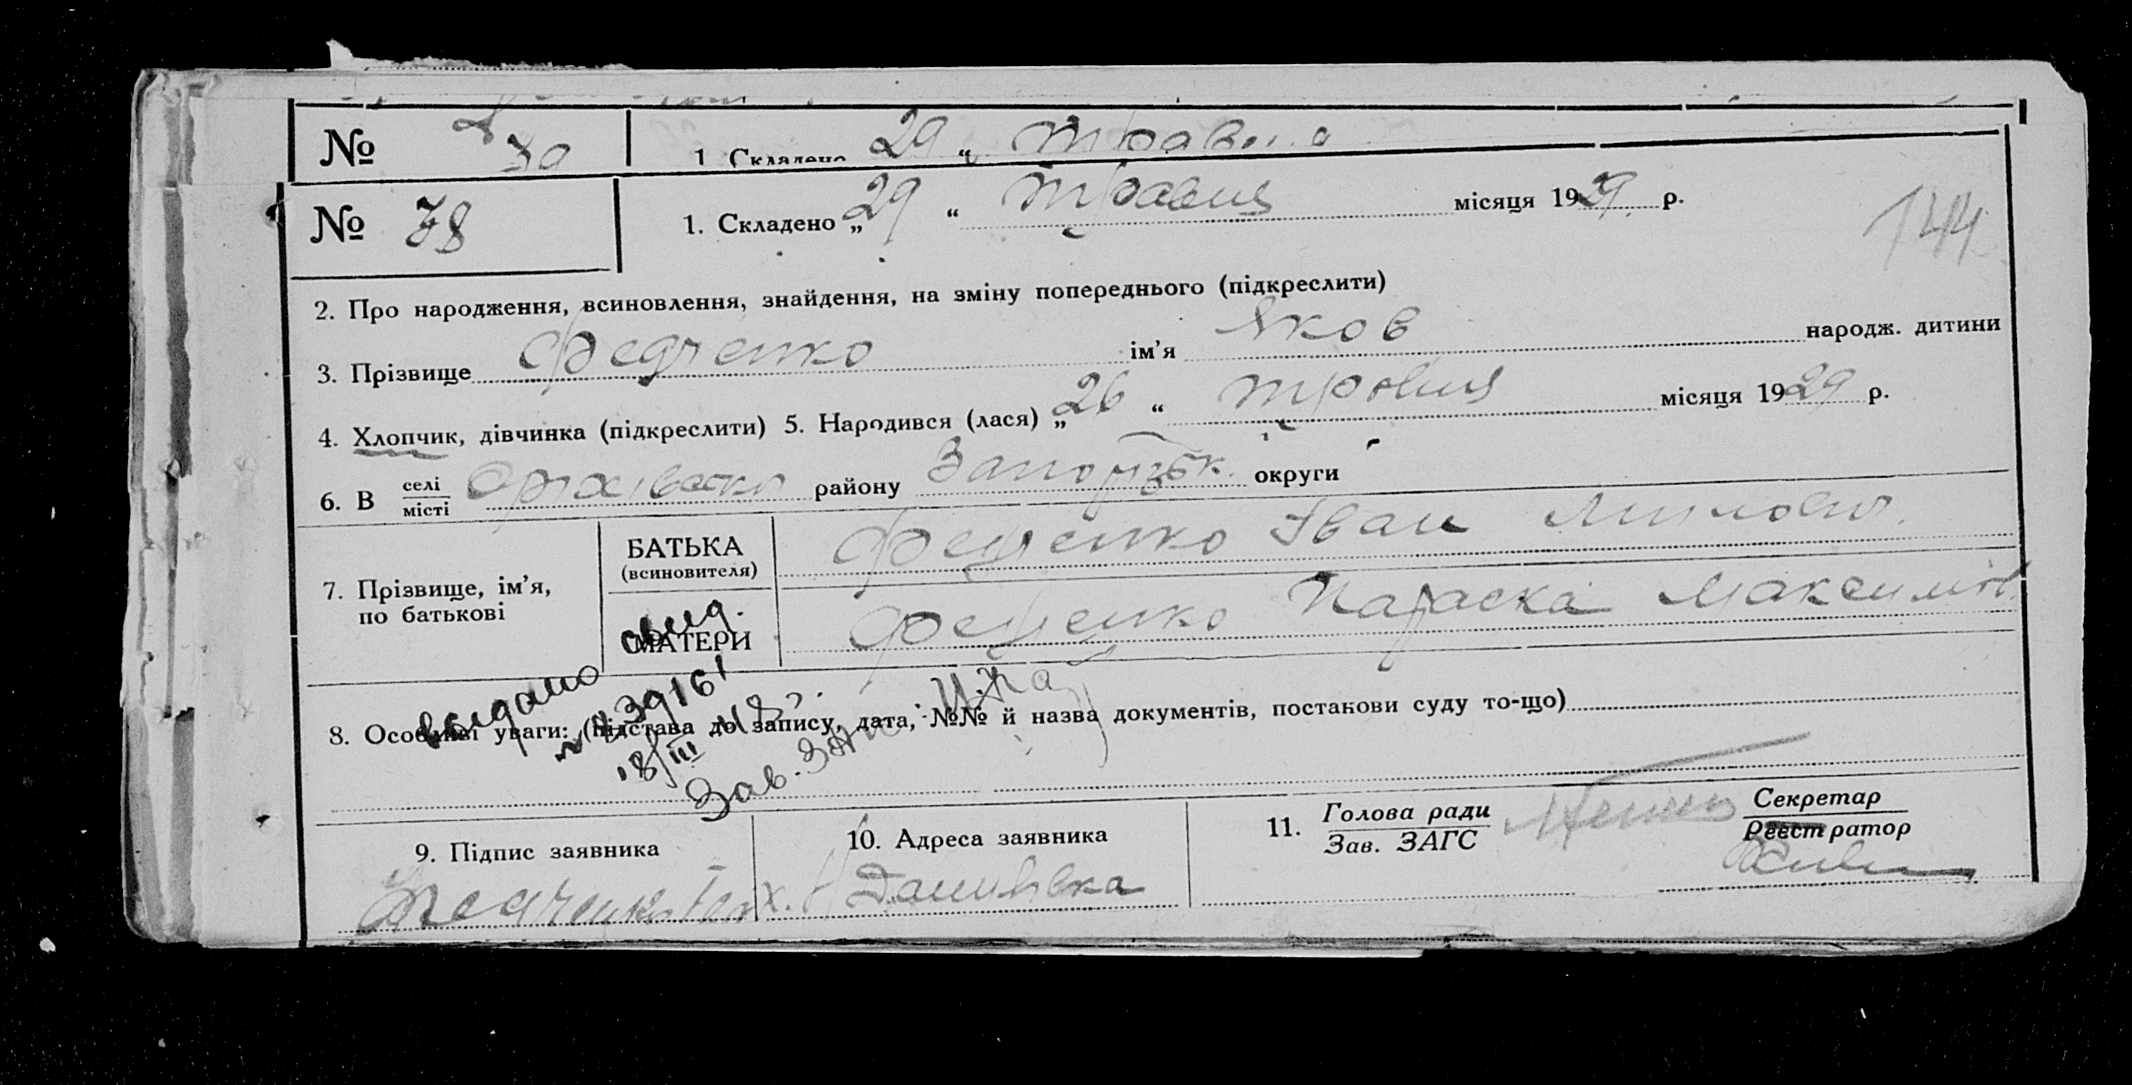 № 1. Складено 29 "
№ 78 1. Складено „29 " травня місяця 1929 р.
144
2. Про народження, всиновлення, знайдення, на зміну попереднього (підкреслити)
3. Прізвище Федченко ім'я Яков народж. дитини
4. Хлопчик, дівчинка (підкреслити) 5. Народився (лася) „26 " травня місяця 1929 р.
6. В селі місті району Запорізьк. округи
7. Прізвище, ім'я, по батькові
БАТЬКА (всиновителя) Федченко Іван
МАТЕРИ Федченко Параска Максимов.
выдано свид.
№ 39161
18/III
Зав.
8. Особливі уваги: (підстава до запису, дата, №№ й назва документів, постанови суду то-що)
9. Підпис заявника
Федченко
10. Адреса заявника
Данилівка
11. Голова ради
Зав. ЗАГС
Секретар
Реєстратор